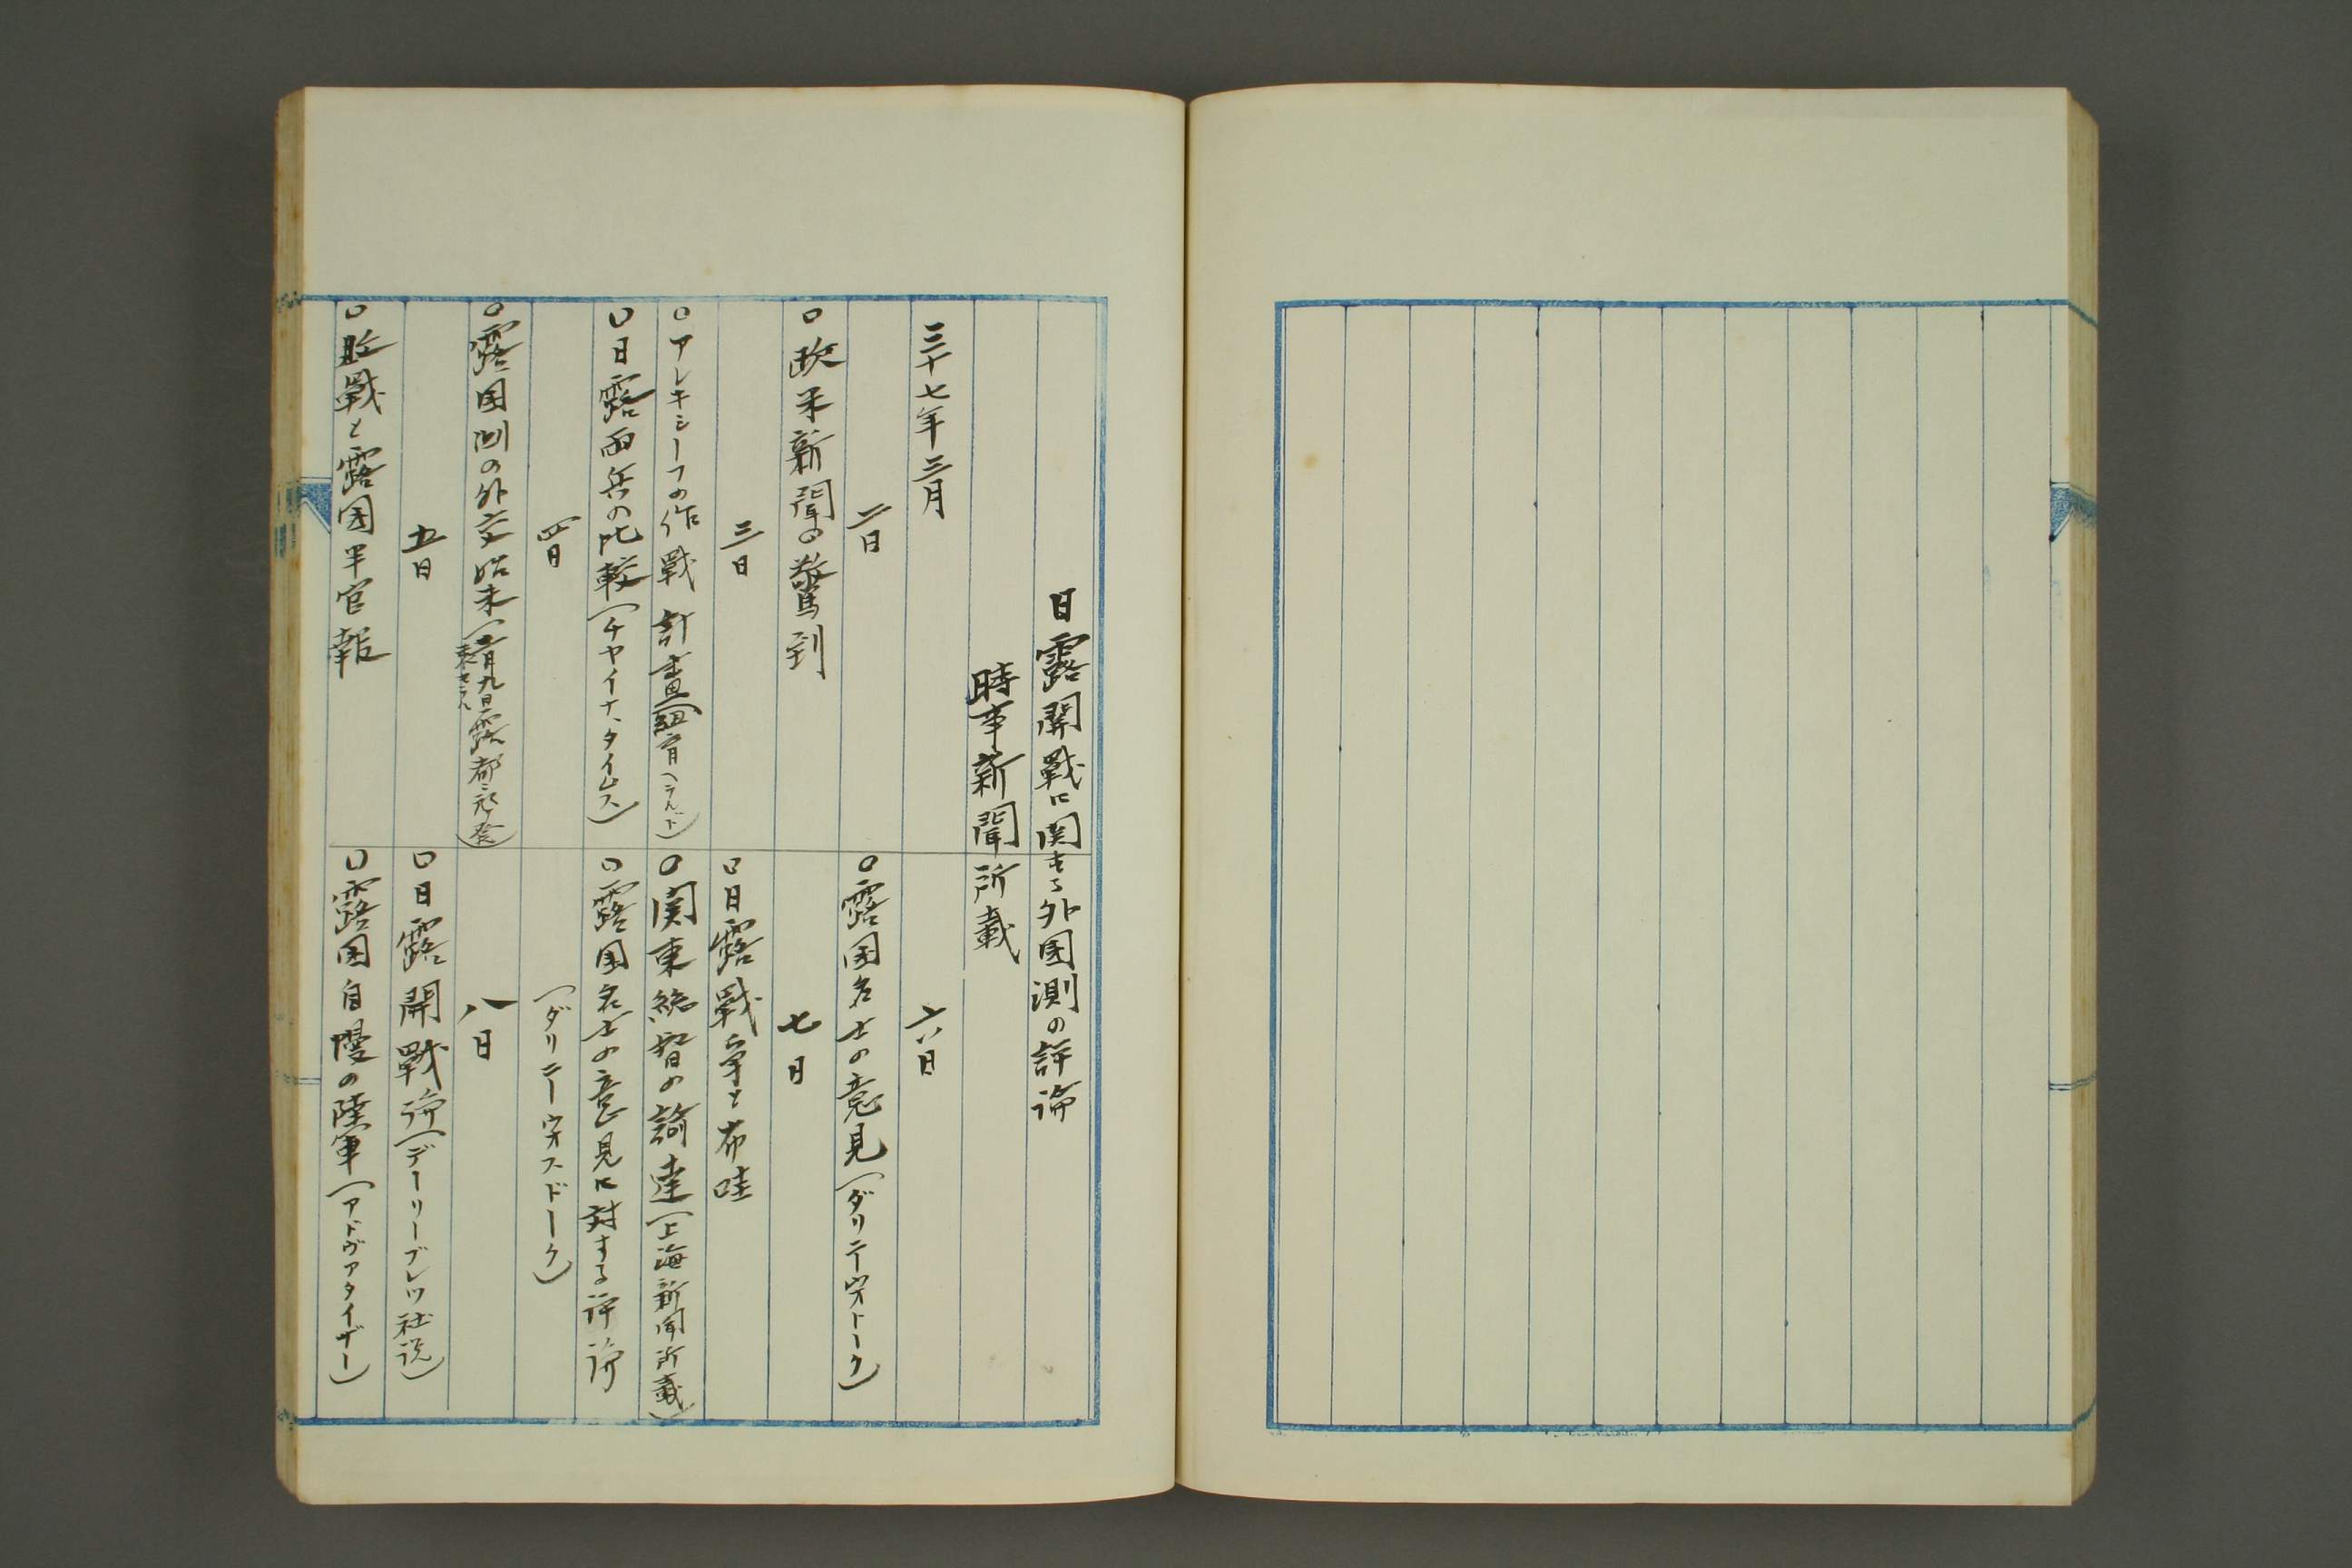 日露開戦に関する外国測の評論
時事新聞所載
三十七年三月
二日
○欧米新聞の驚到
三日
○アレキシーフの作戦計畫(紐育ヘラルド)
○日露両兵の比較(チヤイナ、タイムス)
四日
○露国測の外交始末(二月九日露都ニ於発表セラル)
五日
○敗戦と露国半官報
六日
○露国名士の意見(ダリニーウオトーク)
七日
○日露戦争と布哇
○関東総督の諭達(上海新聞所載)
○露国名士の意見に対する評論
(ダリニーウオストーク)
八日
○日露開戦論(デーリープレツ社説)
○露国自慢の陸軍(アドヴアタイザー)